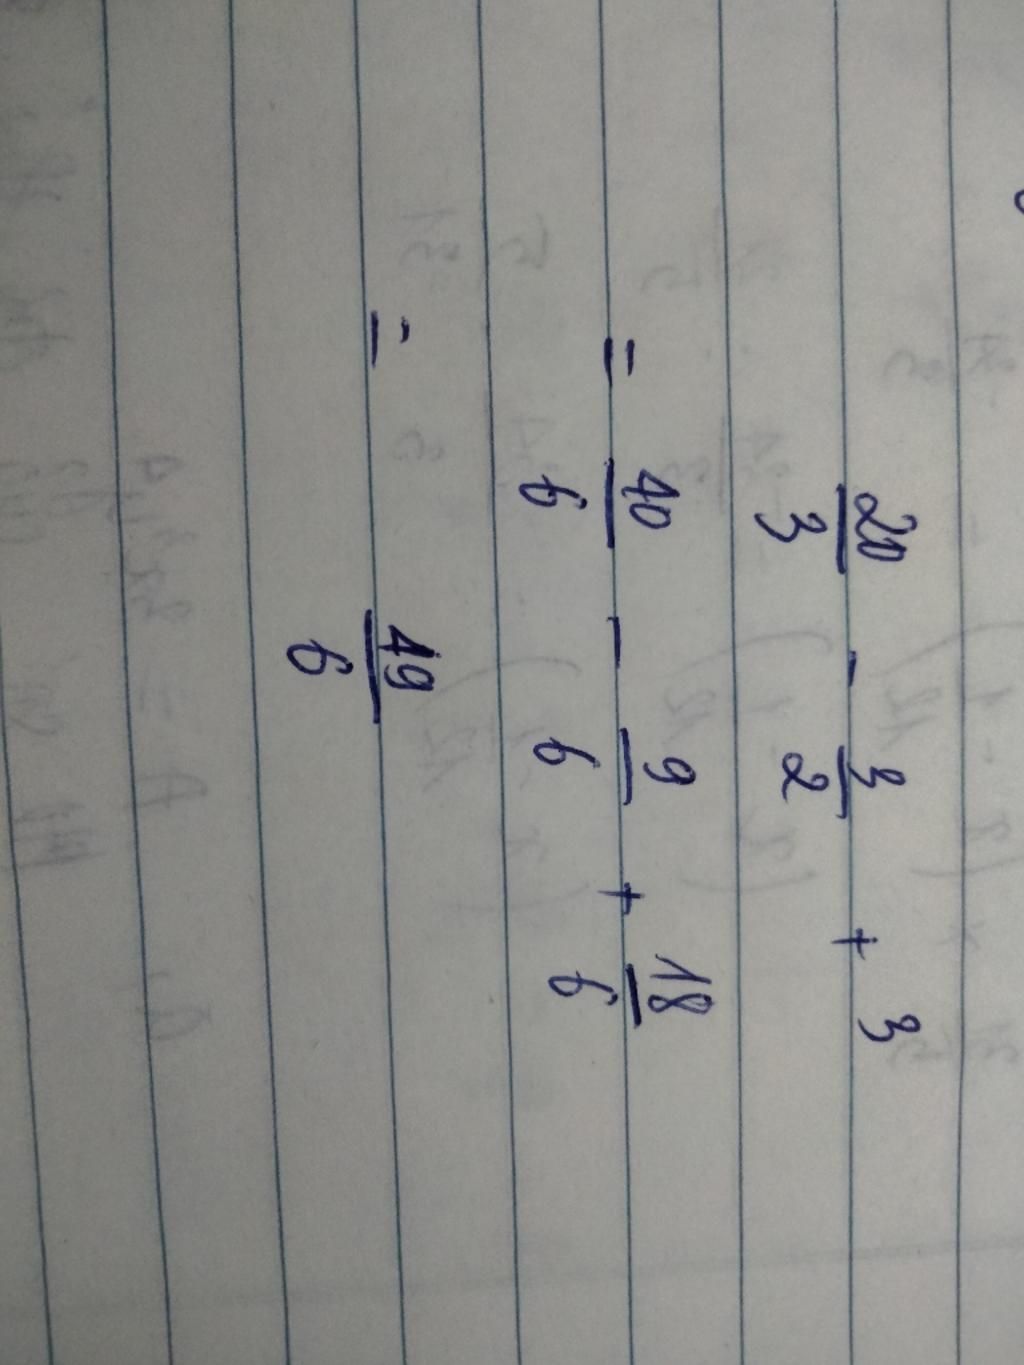 20/3 - 3/2 + 3
= 40/6 - 9/6 + 18/6
= 49/6